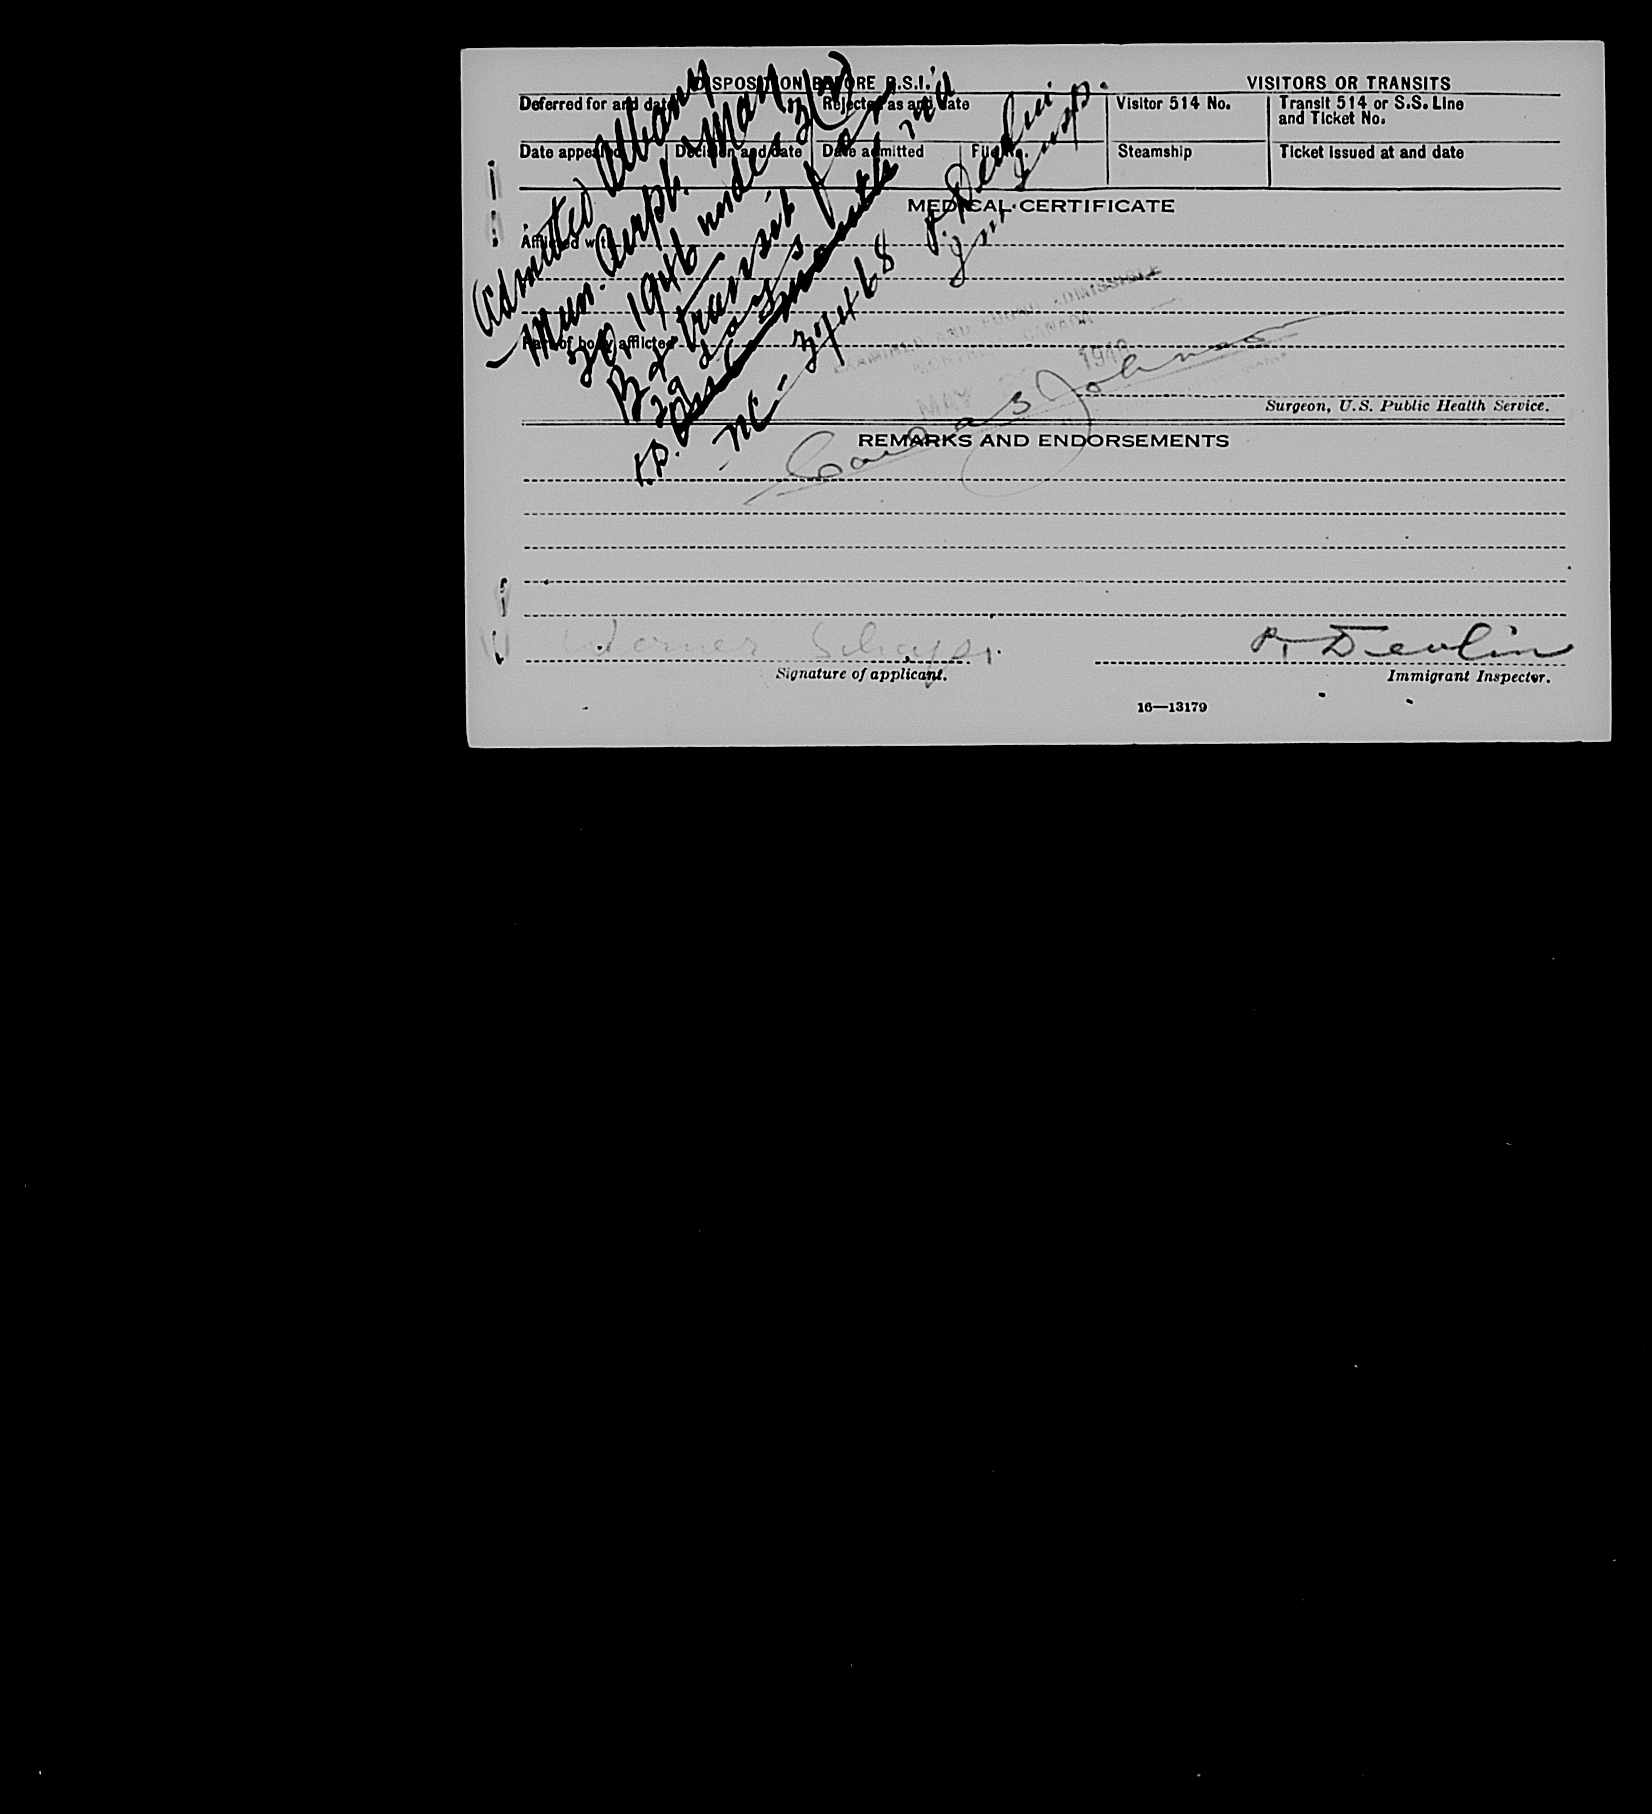 DISPOSITION BEFORE B.S.I. VISITORS OR TRANSITS
Deferred for and date Rejected as and date Visitor 514 No. Transit 514 or S.S. Line
and Ticket No.
Date appealed Decision and date Date admitted File Steamship Ticket Issued at and date
MEDICAL CERTIFICATE
Afflicted with
Part of body afflicted
Admitted Albany
Mun. Airpt. May
20, 1946 under 3(3)
transit for
29 days
NC - 37468 P. Devlin
Insp.
EXAMINED AND FOUND ADMISSIBLE
CANADA
MAY 194
Surgeon, U.S. Public Health Service.
REMARKS AND ENDORSEMENTS
Werner P. Devlin
Signature of applicant. Immigrant Inspector.
16—13179